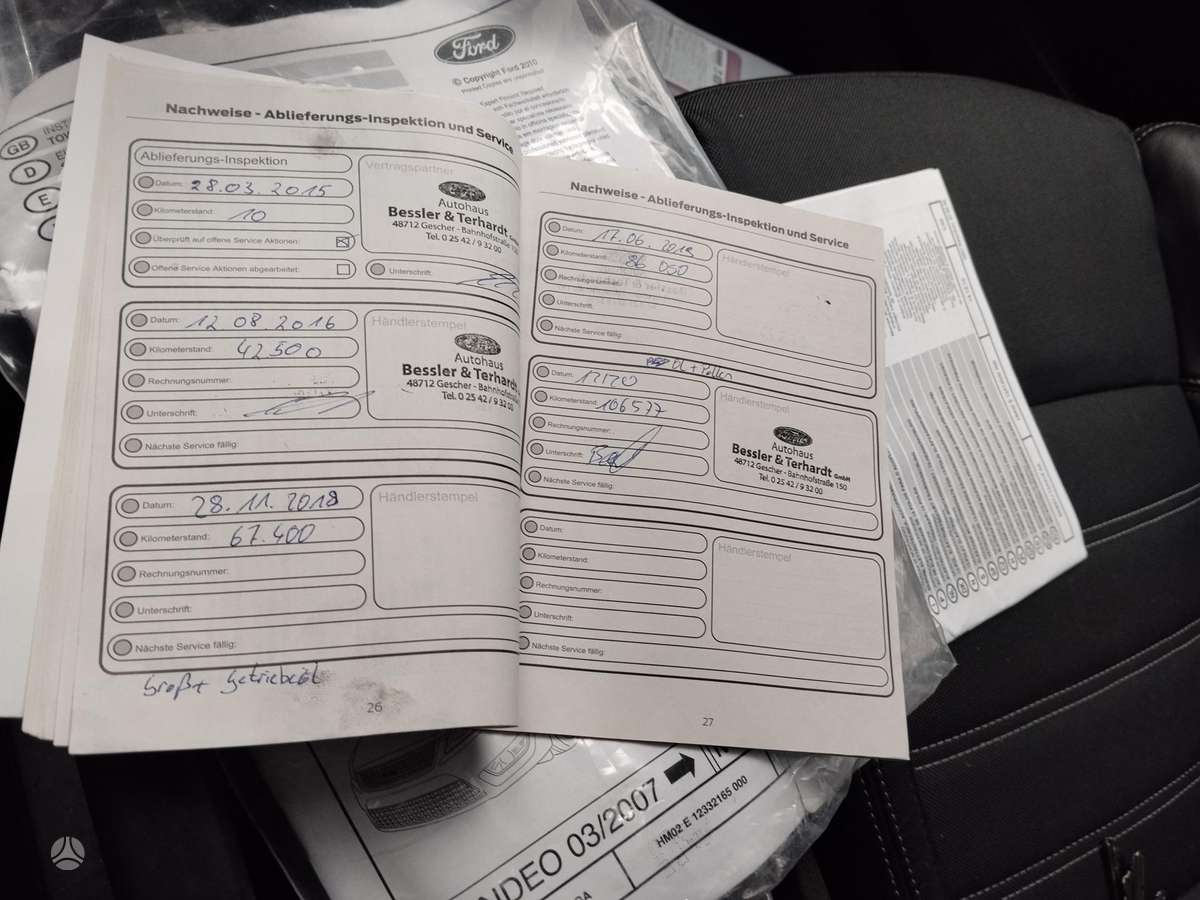 Ford
© Copyright Ford 2010
GB
D
E
Nachweise - Ablieferungs-Inspektion und Service
Ablieferungs-Inspektion
Datum: 28.03.2015
Kilometerstand: 10
Überprüft auf offene Service Aktionen:
Offene Service Aktionen abgearbeitet:
Vertragspartner
Autohaus
Bessler & Terhardt GmbH
48712 Gescher - Bahnhofstraße 150
Tel. 0 25 42 / 9 32 00
Unterschrift:
Datum: 12 08.2016
Kilometerstand: 42500
Rechnungsnummer:
Unterschrift:
Nächste Service fällig:
Händlerstempel
Autohaus
Bessler & Terhardt
48712 Gescher - Bahnhofstraße
Tel. 0 25 42 / 9 32 00
Datum: 28.11.2018
Kilometerstand: 67.400
Rechnungsnummer:
Unterschrift:
Nächste Service fällig:
Händlerstempel
Groß + Getriebeöl
26
Nachweise - Ablieferungs-Inspektion und Service
Datum: 17.06.2019
Kilometerstand: 86 050
Rechnungsnummer:
Unterschrift:
Nächste Service fällig:
Händlerstempel
Öl + Pollen
Datum:
Kilometerstand: 106577
Rechnungsnummer:
Unterschrift:
Nächste Service fällig:
Händlerstempel
Autohaus
Bessler & Terhardt GmbH
48712 Gescher - Bahnhofstraße 150
Tel. 0 25 42 / 9 32 00
Datum:
Kilometerstand:
Rechnungsnummer:
Unterschrift:
Nächste Service fällig:
Händlerstempel
27
03/2007
HM02 E 12332165 000